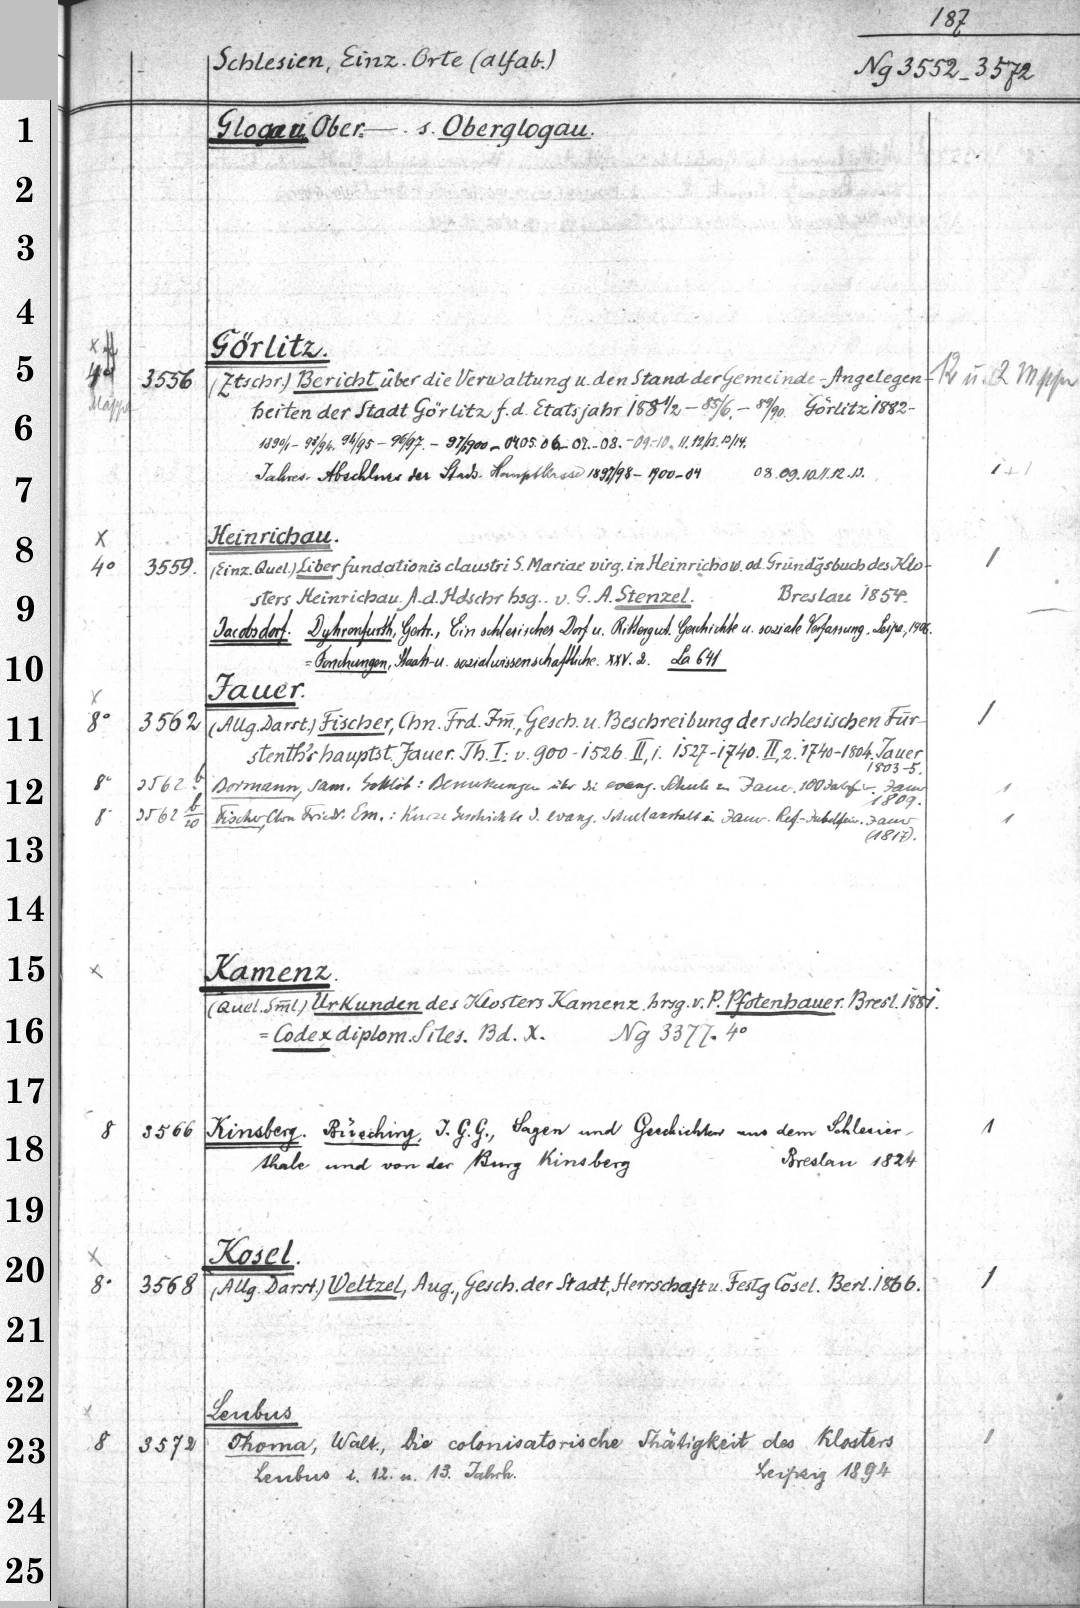 187
Schlesien, Einz. Orte (alfab.)
Ng 3552-3572
1 Glogau, Ober- . s. Oberglogau.
2
3
4
x Görlitz.
5 4° 3556 (Ztschr.) Bericht über die Verwaltung u. den Stand der Gemeinde-Angelegen- u. 2 Mppn
Mappe heiten der Stadt Görlitz f. d. Etatsjahr 1881/2 - 85/6, - 89/90. Görlitz 1882-
6 1890/1 - 93/94. 94/95 - 96/97. - 97/1900 - 04 05. 06 - 07. - 08. - 09-10. 11. 12/13. 13/14.
7 Jahres-Abschluss der Stadt- Hauptkasse 1897/98 - 1900-04 08. 09. 10. 11. 12. 13. 1+1
8 x Heinrichau.
4° 3559. (Einz. Quel.) Liber fundationis claustri S. Mariae virg. in Heinrichow od. Gründgsbuch des Klo- 1
9 sters Heinrichau. A. d. Hdschr hsg. v. G. A. Stenzel. Breslau 1854.
Jacobsdorf. Dyhrenfurth, Gertr., Ein schlesisches Dorf u. Rittergut. Geschichte u. soziale Verfassung. Leipz., 1906.
10 = Forschungen, Staats- u. sozialwissenschaftliche. XXV. 2. La 641
x Jauer.
11 8° 3562 (Allg. Darst.) Fischer, Chn. Frd. Em., Gesch. u. Beschreibung der schlesischen Für- 1
stenth's hauptst. Jauer. Th. I: v. 900-1526. II,1. 1527-1740. II,2. 1740-1804. Jauer
1803-5.
12 8° 3562 b Dormann, Sam. Gottlob: Bemerkungen über die evang. Schule in Jauer. 100 Jahrfr. Jauer 1
1809.
8° 3562 b/20 Fischer, Chn Friedr. Em.: Kurze Geschichte d. evang. Schulanstalt in Jauer. Ref-Jubelfeier. Jauer 1
13 (1817).
14
15 x Kamenz.
(Quel. Sml.) Urkunden des Klosters Kamenz, hrsg. v. P. Pfotenhauer. Bresl. 1881.
16 = Codex diplom. Siles. Bd. X. Ng 3377. 4°
17
8 3566 Kinsberg. Büsching, J. G. G., Sagen und Geschichten aus dem Schlesier- 1
18 thale und von der Burg Kinsberg Breslau 1824
19
x Kosel.
20 8° 3568 (Allg. Darst.) Weltzel, Aug., Gesch. der Stadt, Herrschaft u. Festg Cosel. Berl. 1866. 1
21
22
x Leubus
23 8 3572 Thoma, Walt., Die colonisatorische Thätigkeit des Klosters 1
Leubus i. 12. u. 13. Jahrh. Leipzig 1894
24
25